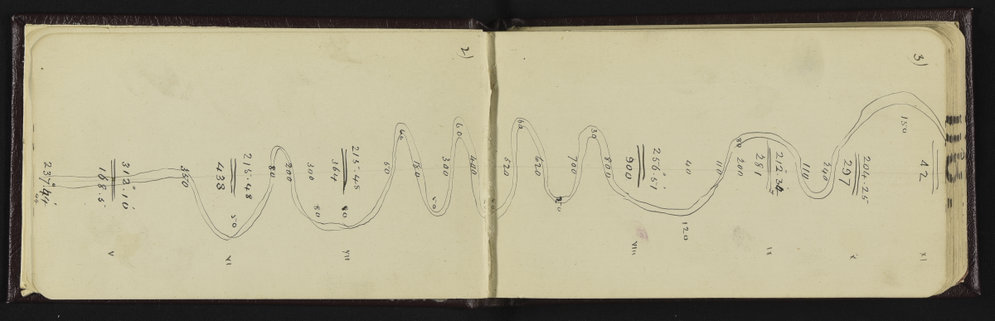 2)
V
312·10
188·5
350
VI
215·48
438
50
80
200
300
80
VII
215·45
364
80
50
60
180
50
300
60
400
3)
60
520
620
700
30
800
VIII
256·51
900
40
120
110
80
200
IX
281
110
240
X
204·25
297
150
XI
42